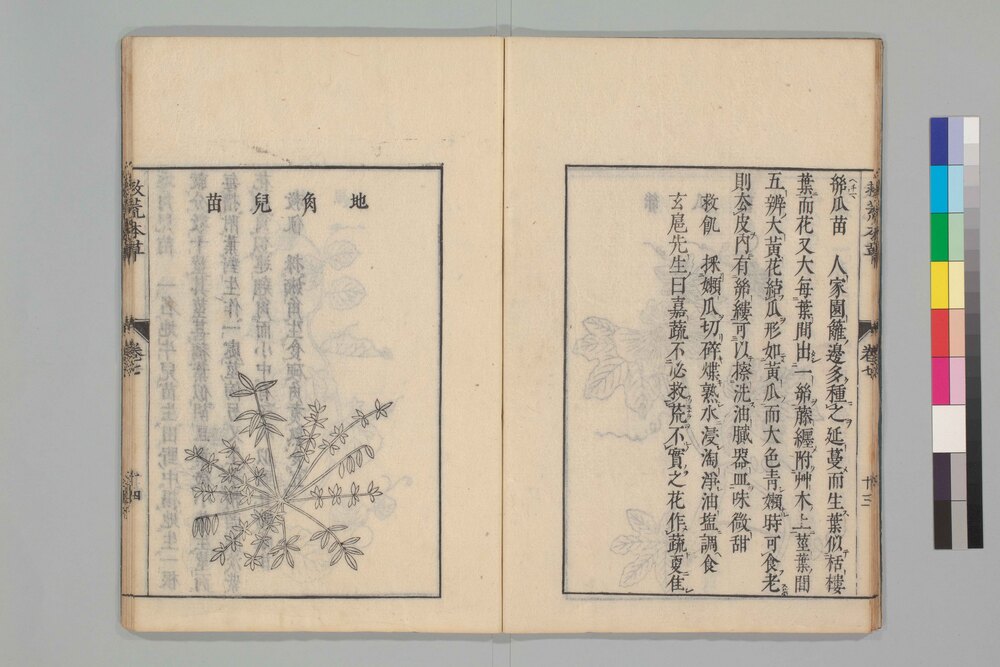 絲瓜苗　人家園籬邊多種之延蔓而生葉似栝樓
葉而花又大每葉間出一絲藤纒附艸木上莖葉間
五瓣大黃花結瓜形如黃瓜而大色青嫩時可食老
則去皮內有絲縷可以擦洗油膩器皿味微甜
救飢　採嫩瓜切碎煠熟水浸淘淨油塩調食
玄扈先生曰嘉蔬不必救荒不實之花作蔬更佳
卷七
十三
地角兒苗
救荒本草
卷之七
十四